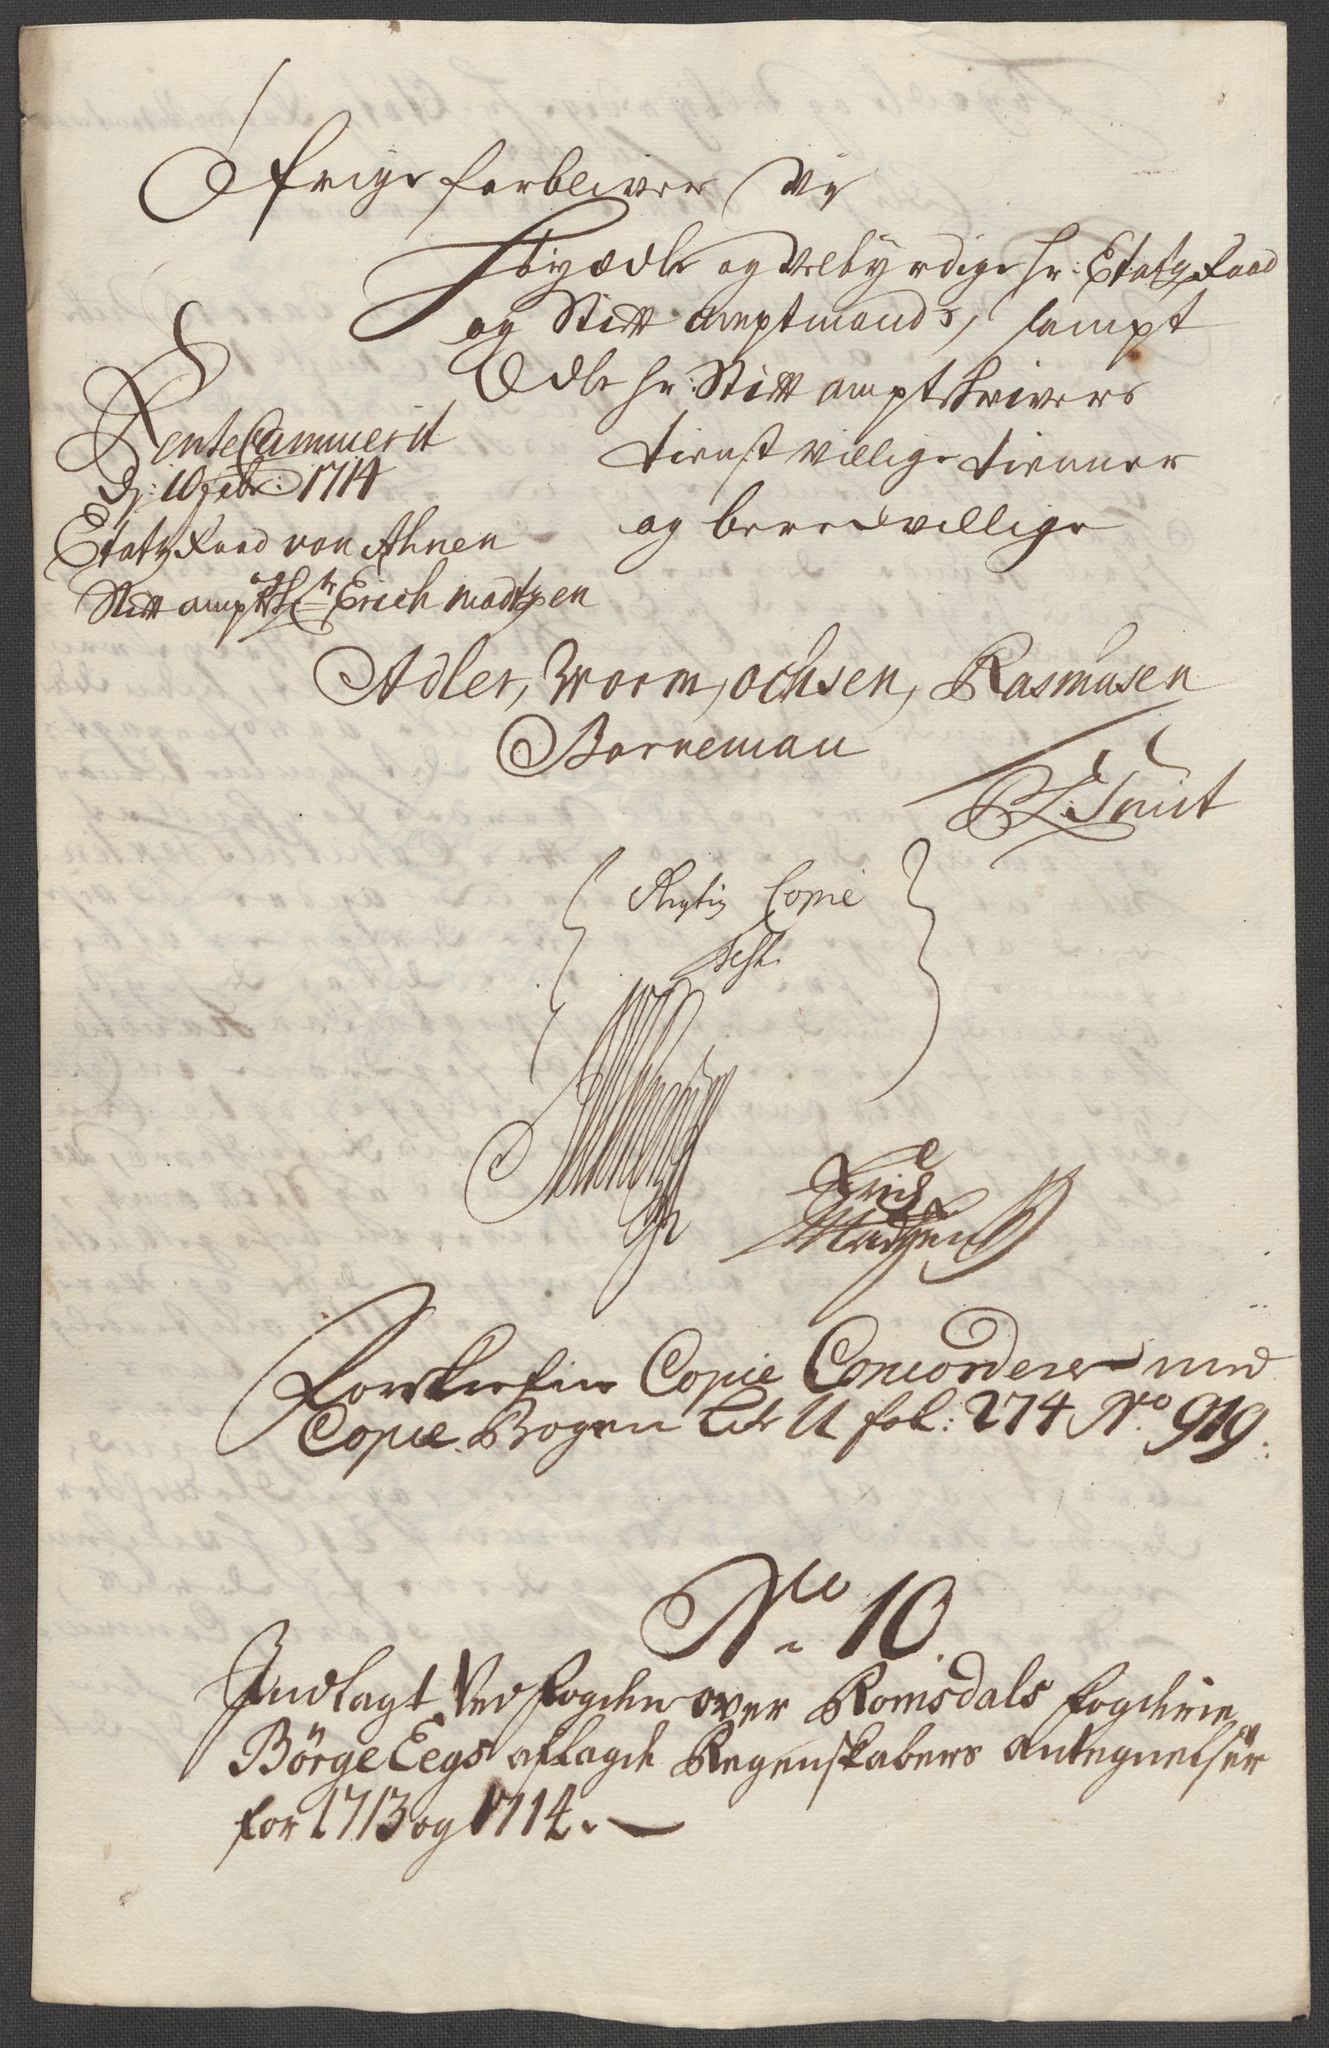 Øfrige forbliver Vy
Høyædle og Velbyrdige hr: Etatz Raad
og Stiftamptmands, sampt
Ædle hr: Stiftamptskrivers
tienstvillige tienner
og beredvillige
RenteCammerit
d: 10 febr: 1714
Etatz Raad von Ahnen
Stiftamptskr Erich Madtzen
Adler, Worm, Ochsen, Rasmusen
Borneman
Smit
Rigtig Copie
Test
Erich
Madtzen
Forskrefne Copie Concorderer med
Copie Bogen Litr U fol: 274 No 919:
No 10
Indlagt Ved fogden over Romsdals fogderie
Börge Eegs aflagde Regenskabers Antegnelser
for 1713 og 1714.